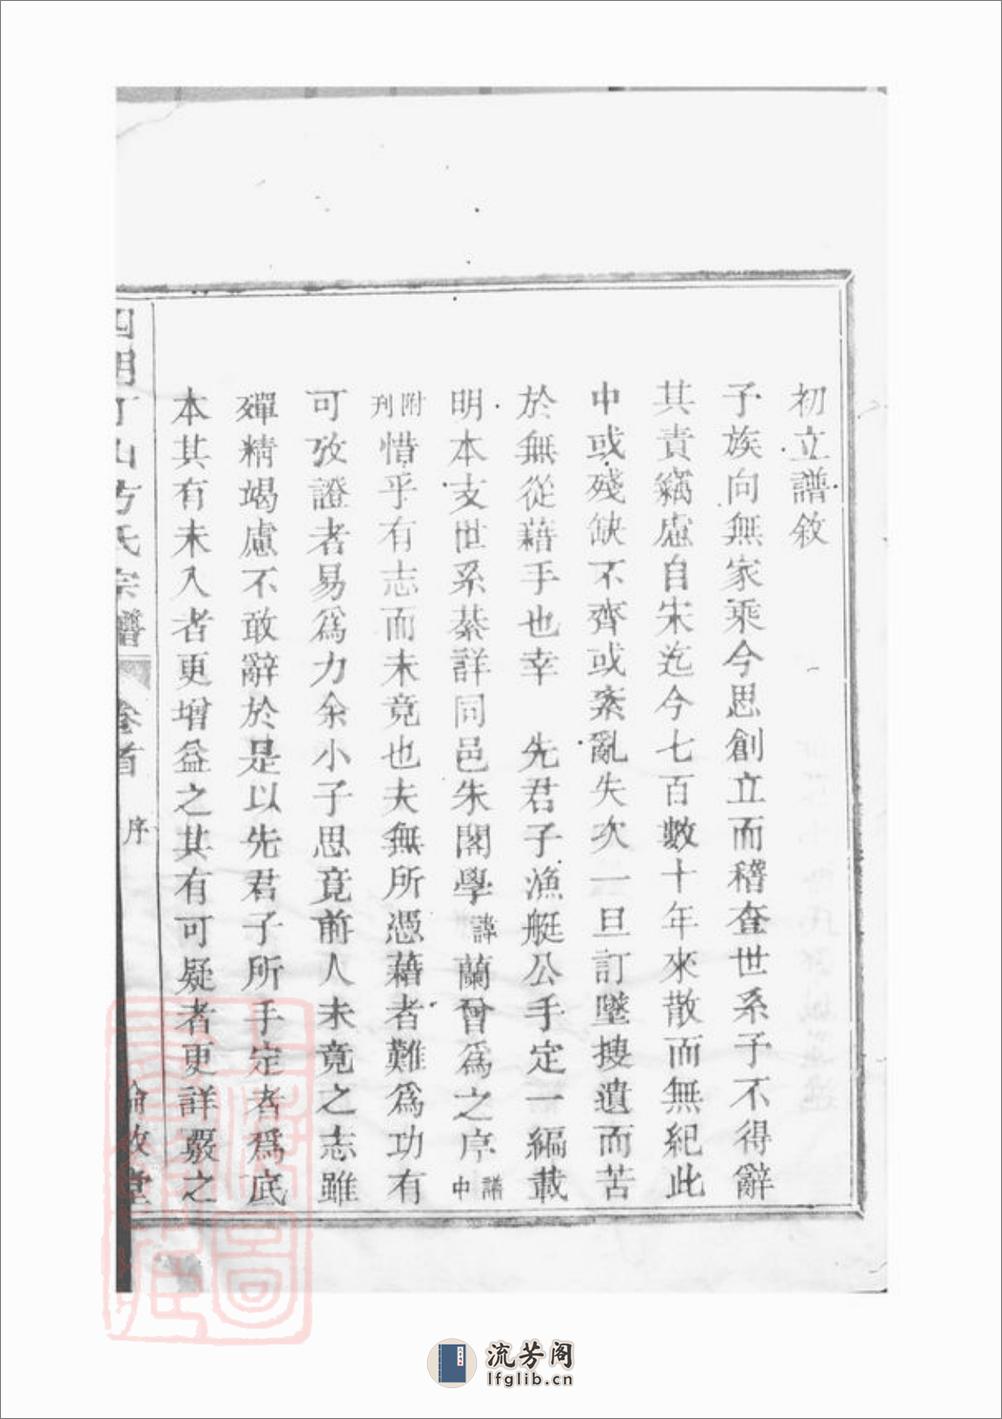 初立譜敘
予族向無家乘今思創立而稽查世系予不得辭
其責竊慮自宋迄今七百數十年來散而無紀此
中或殘缺不齊或紊亂失次一旦訂墜搜遺而苦
於無從藉手也幸 先君子漁艇公手定一編載
明本支世系綦詳同邑朱閣學諱蘭曾爲之序譜中
附刊惜乎有志而未竟也夫無所憑藉者難爲功有
可攷證者易爲力余小子思竟前人未竟之志雖
殫精竭慮不敢辭於是以先君子所手定者爲底
本其有未入者更增益之其有可疑者更詳覈之
四明丁山方氏宗譜 卷首 序 敦堂
流芳阁
lfglib.cn